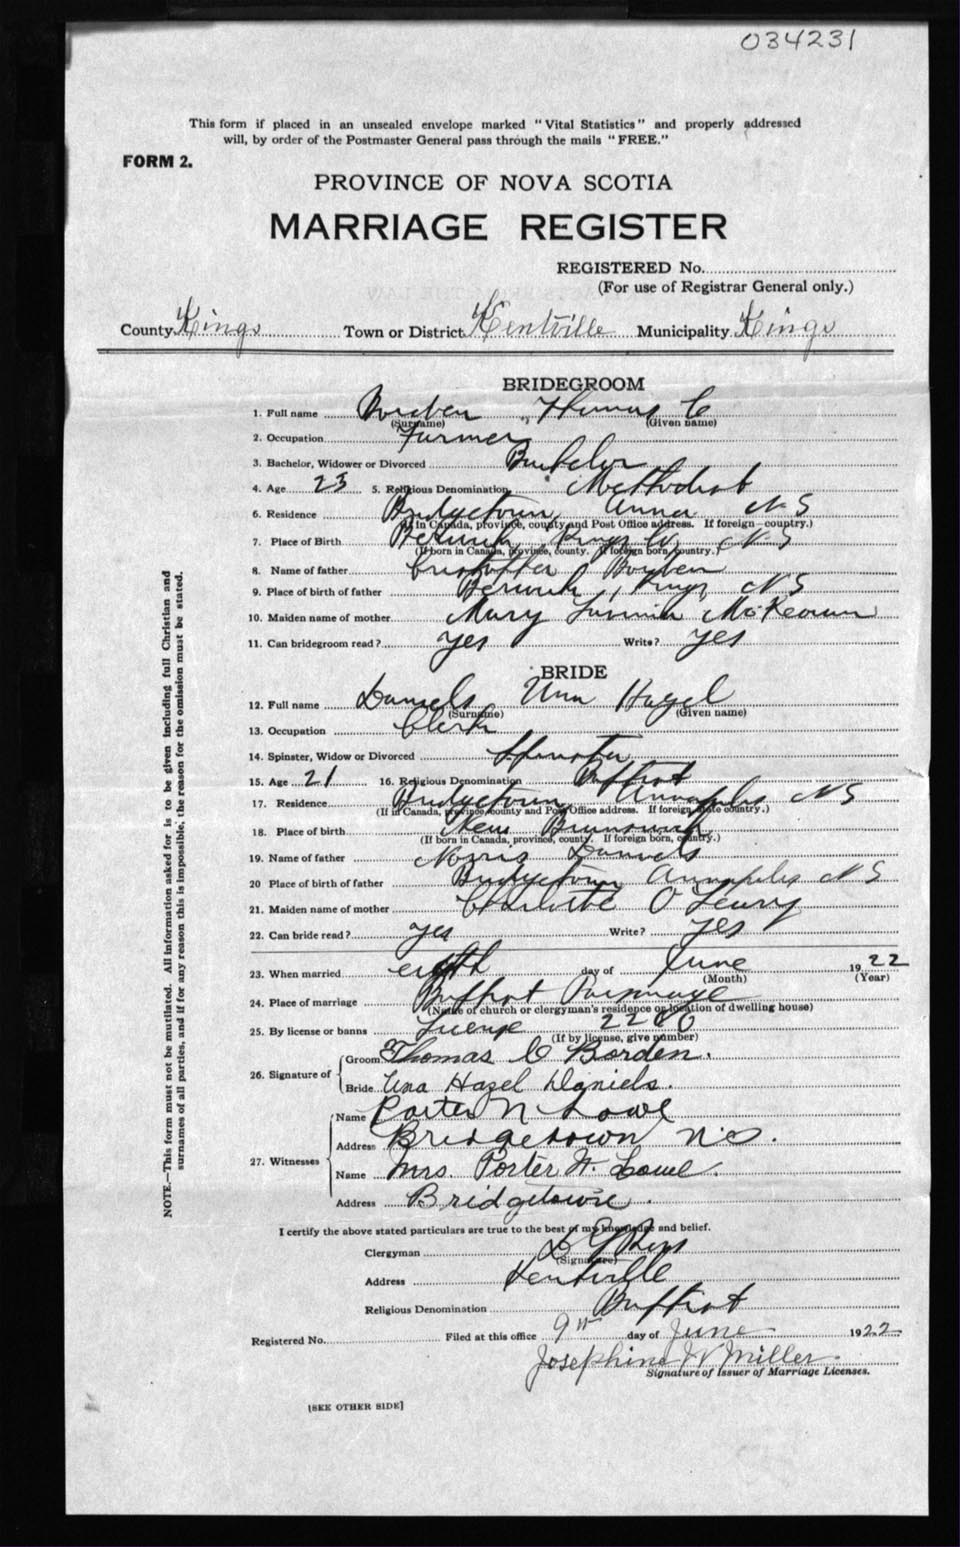 034231
This form if placed in an unsealed envelope marked "Vital Statistics" and properly addressed
will, by order of the Postmaster General pass through the mails "FREE."
FORM 2.
PROVINCE OF NOVA SCOTIA
MARRIAGE REGISTER
REGISTERED No.
(For use of Registrar General only.)
County Kings Town or District Kentville Municipality Kings
BRIDEGROOM
1. Full name Borden, Thomas C
(Surname) (Given name)
2. Occupation Farmer
3. Bachelor, Widower or Divorced Bachelor
4. Age 23 5. Religious Denomination Methodist
6. Residence Bridgetown Anna N S
(If in Canada, province, county and Post Office address. If foreign country.)
7. Place of Birth Berwick Kings Co. N S
(If born in Canada, province, county. If foreign born, country.)
8. Name of father Borden
9. Place of birth of father Berwick Kings N S
10. Maiden name of mother Mary McKeown
11. Can bridegroom read? yes Write? yes
BRIDE
12. Full name Daniels Una Hazel
(Surname) (Given name)
13. Occupation Clerk
14. Spinster, Widow or Divorced Spinster
15. Age 21 16. Religious Denomination Baptist
17. Residence Bridgetown Annapolis N S
(If in Canada, province, county and Post Office address. If foreign, state country.)
18. Place of birth New Brunswick
(If born in Canada, province, county. If foreign born, country.)
19. Name of father Norris Daniels
20 Place of birth of father Bridgetown Annapolis N S
21. Maiden name of mother Charlotte O'Leary
22. Can bride read? yes Write? yes
23. When married eighth day of June 1922
(Month) (Year)
24. Place of marriage Baptist Parsonage
(Name of church or clergyman's residence or location of dwelling house)
25. By license or banns License
(If by license, give number)
26. Signature of Groom Thomas C Borden.
Bride Una Hazel Daniels.
27. Witnesses Name Porter N Lowe
Address Bridgetown N.S.
Name Mrs. Porter N. Lowe.
Address Bridgetown.
I certify the above stated particulars are true to the best of my knowledge and belief.
Clergyman
(Signature)
Address Kentville
Religious Denomination Baptist
Registered No. Filed at this office 9th day of June 1922
Josephine W Miller.
Signature of Issuer of Marriage Licenses.
[SEE OTHER SIDE]
NOTE.—This form must not be mutilated. All information asked for is to be given including full Christian and
surnames of all parties, and if for any reason this is impossible, the reason for the omission must be stated.